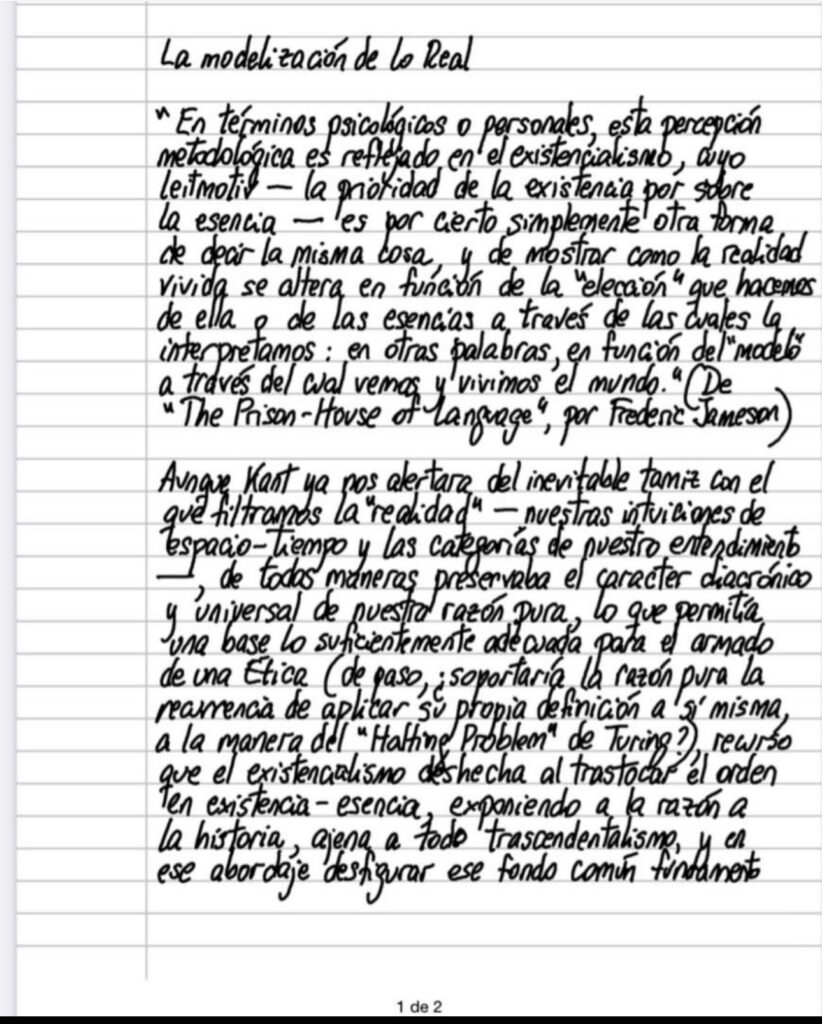 La modelización de lo Real
"En términos psicológicos o personales, esta percepción
metodológica es reflejado en el existencialismo, cuyo
leitmotiv — la prioridad de la existencia por sobre
la esencia — es por cierto simplemente otra forma
de decir la misma cosa, y de mostrar como la realidad
vivida se altera en función de la "elección" que hacemos
de ella o de las esencias a través de las cuales la
interpretamos: en otras palabras, en función del "modelo"
a través del cual vemos y vivimos el mundo." (De
"The Prison-House of Language", por Frederic Jameson)
Aunque Kant ya nos alertara del inevitable tamiz con el
que filtramos la "realidad" — nuestras intuiciones de
espacio-tiempo y las categorías de nuestro entendimiento
—, de todas maneras preservaba el caracter diacrónico
y universal de nuestra razón pura, lo que permitía
una base lo suficientemente adecuada para el armado
de una Ética (de paso, ¿soportaría la razón pura la
recurrencia de aplicar su propia definición a sí misma,
a la manera del "Halting Problem" de Turing?), recurso
que el existencialismo deshecha al trastocar el orden
en existencia-esencia, exponiendo a la razón a
la historia, ajena a todo trascendentalismo, y en
ese abordaje desfigurar ese fondo común fundamento
1 de 2